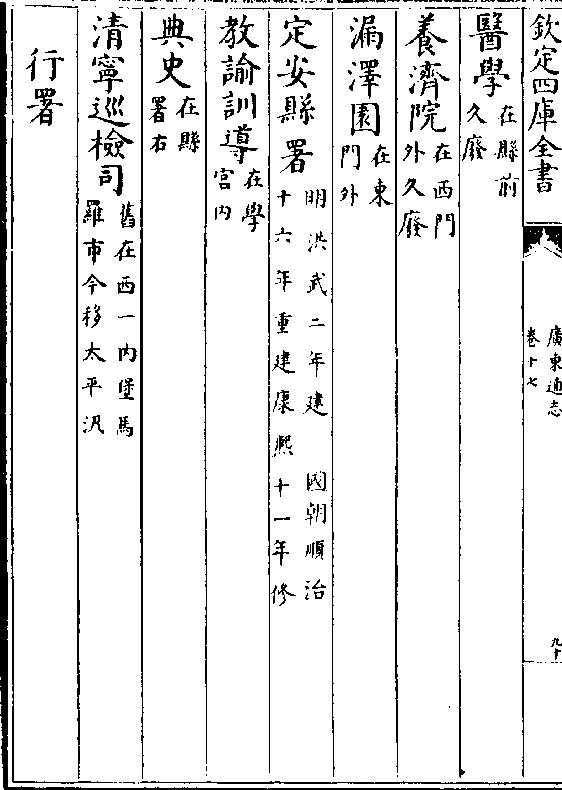 欽定四庫全書
廣東通志
卷十七
九十
醫學在縣前
久廢
養濟院在西門
外久廢
漏澤園在東
門外
定安縣署明洪武二年建 國朝順治
十六年重建康熙十一年修
教諭訓導在學
宮內
典史在縣
署右
清寧巡檢司舊在西一內堡馬
羅市今移太平汛
行署